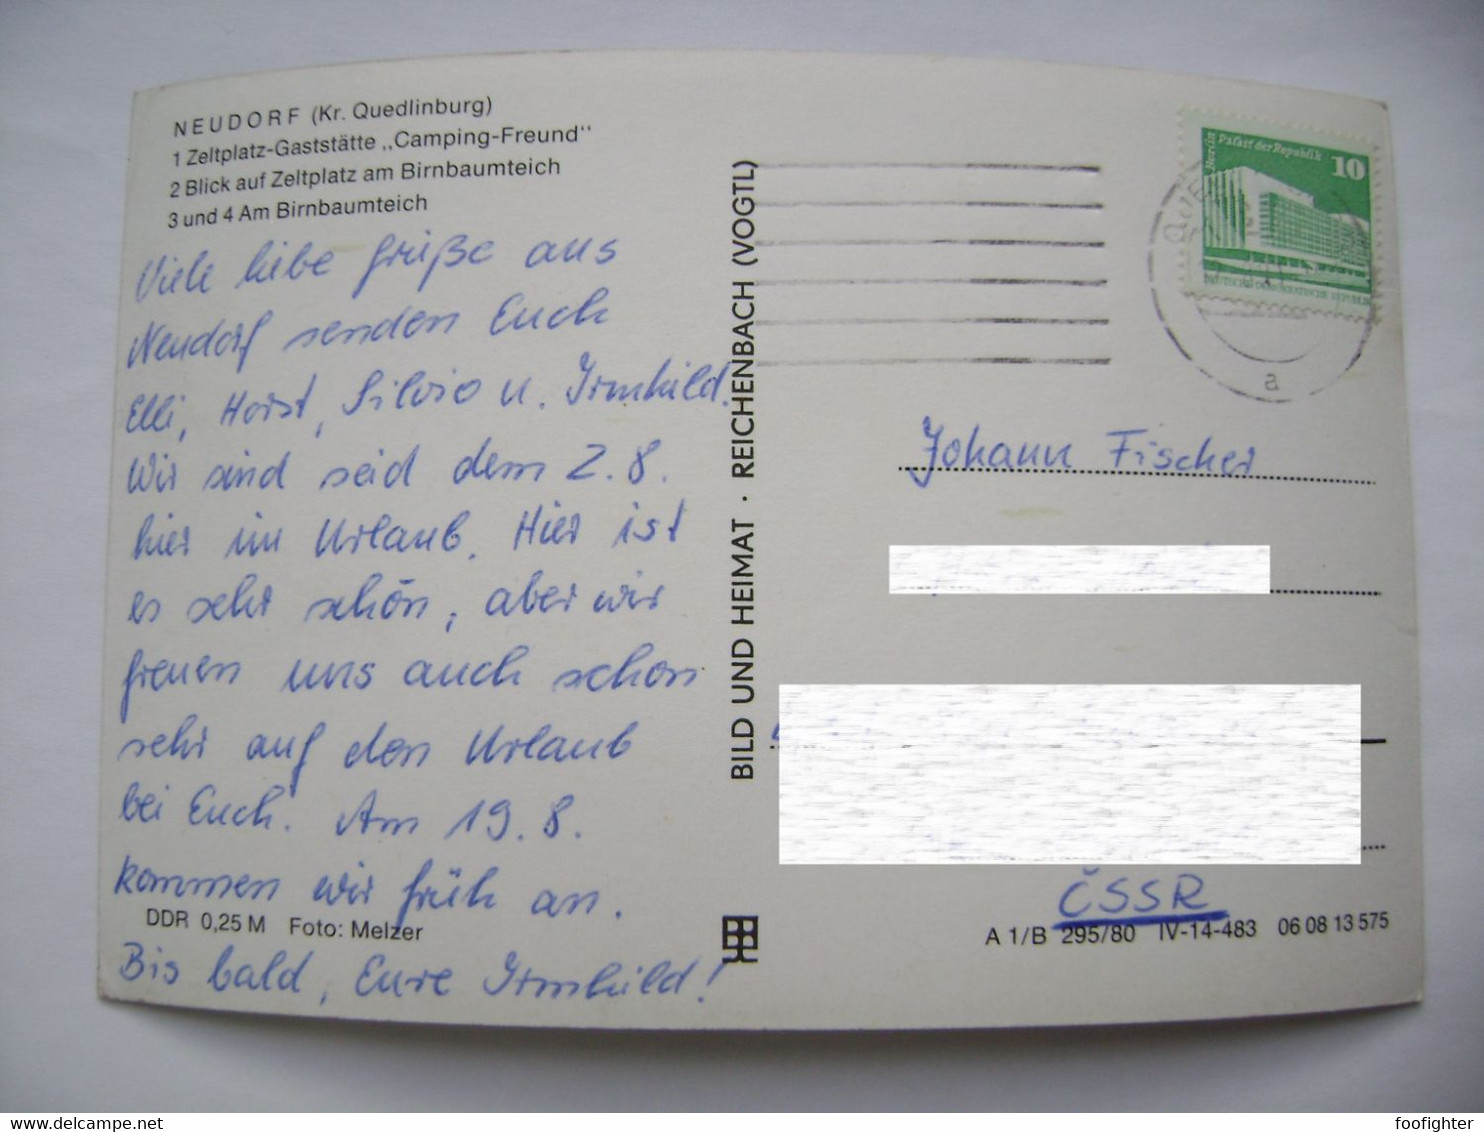 NEUDORF (Kr. Quedlinburg)
1 Zeltplatz-Gaststätte „Camping-Freund"
2 Blick auf Zeltplatz am Birnbaumteich
3 und 4 Am Birnbaumteich
Viele liebe Grüße aus
Neudorf senden Euch
Elli, Horst, Silvio u. Irmhild.
Wir sind seid dem 2.8.
hier im Urlaub. Hier ist
es sehr schön, aber wir
freuen uns auch schon
sehr auf den Urlaub
bei Euch. Am 19.8.
kommen wir früh an.
DDR 0,25 M Foto: Melzer
Bis bald, Eure Irmhild!
BILD UND HEIMAT · REICHENBACH (VOGTL)
Berlin Palast der Republik
10
DEUTSCHE DEMOKRATISCHE REPUBLIK
a
Johann Fischer
ČSSR
A 1/B 295/80 IV-14-483 06 08 13 575
delcampe.net
foofighter